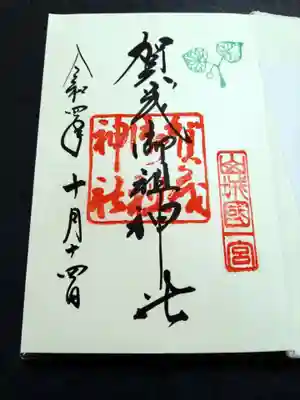 山城國一宮
賀茂御祖神社
賀茂御祖神社
令和四年十月十四日